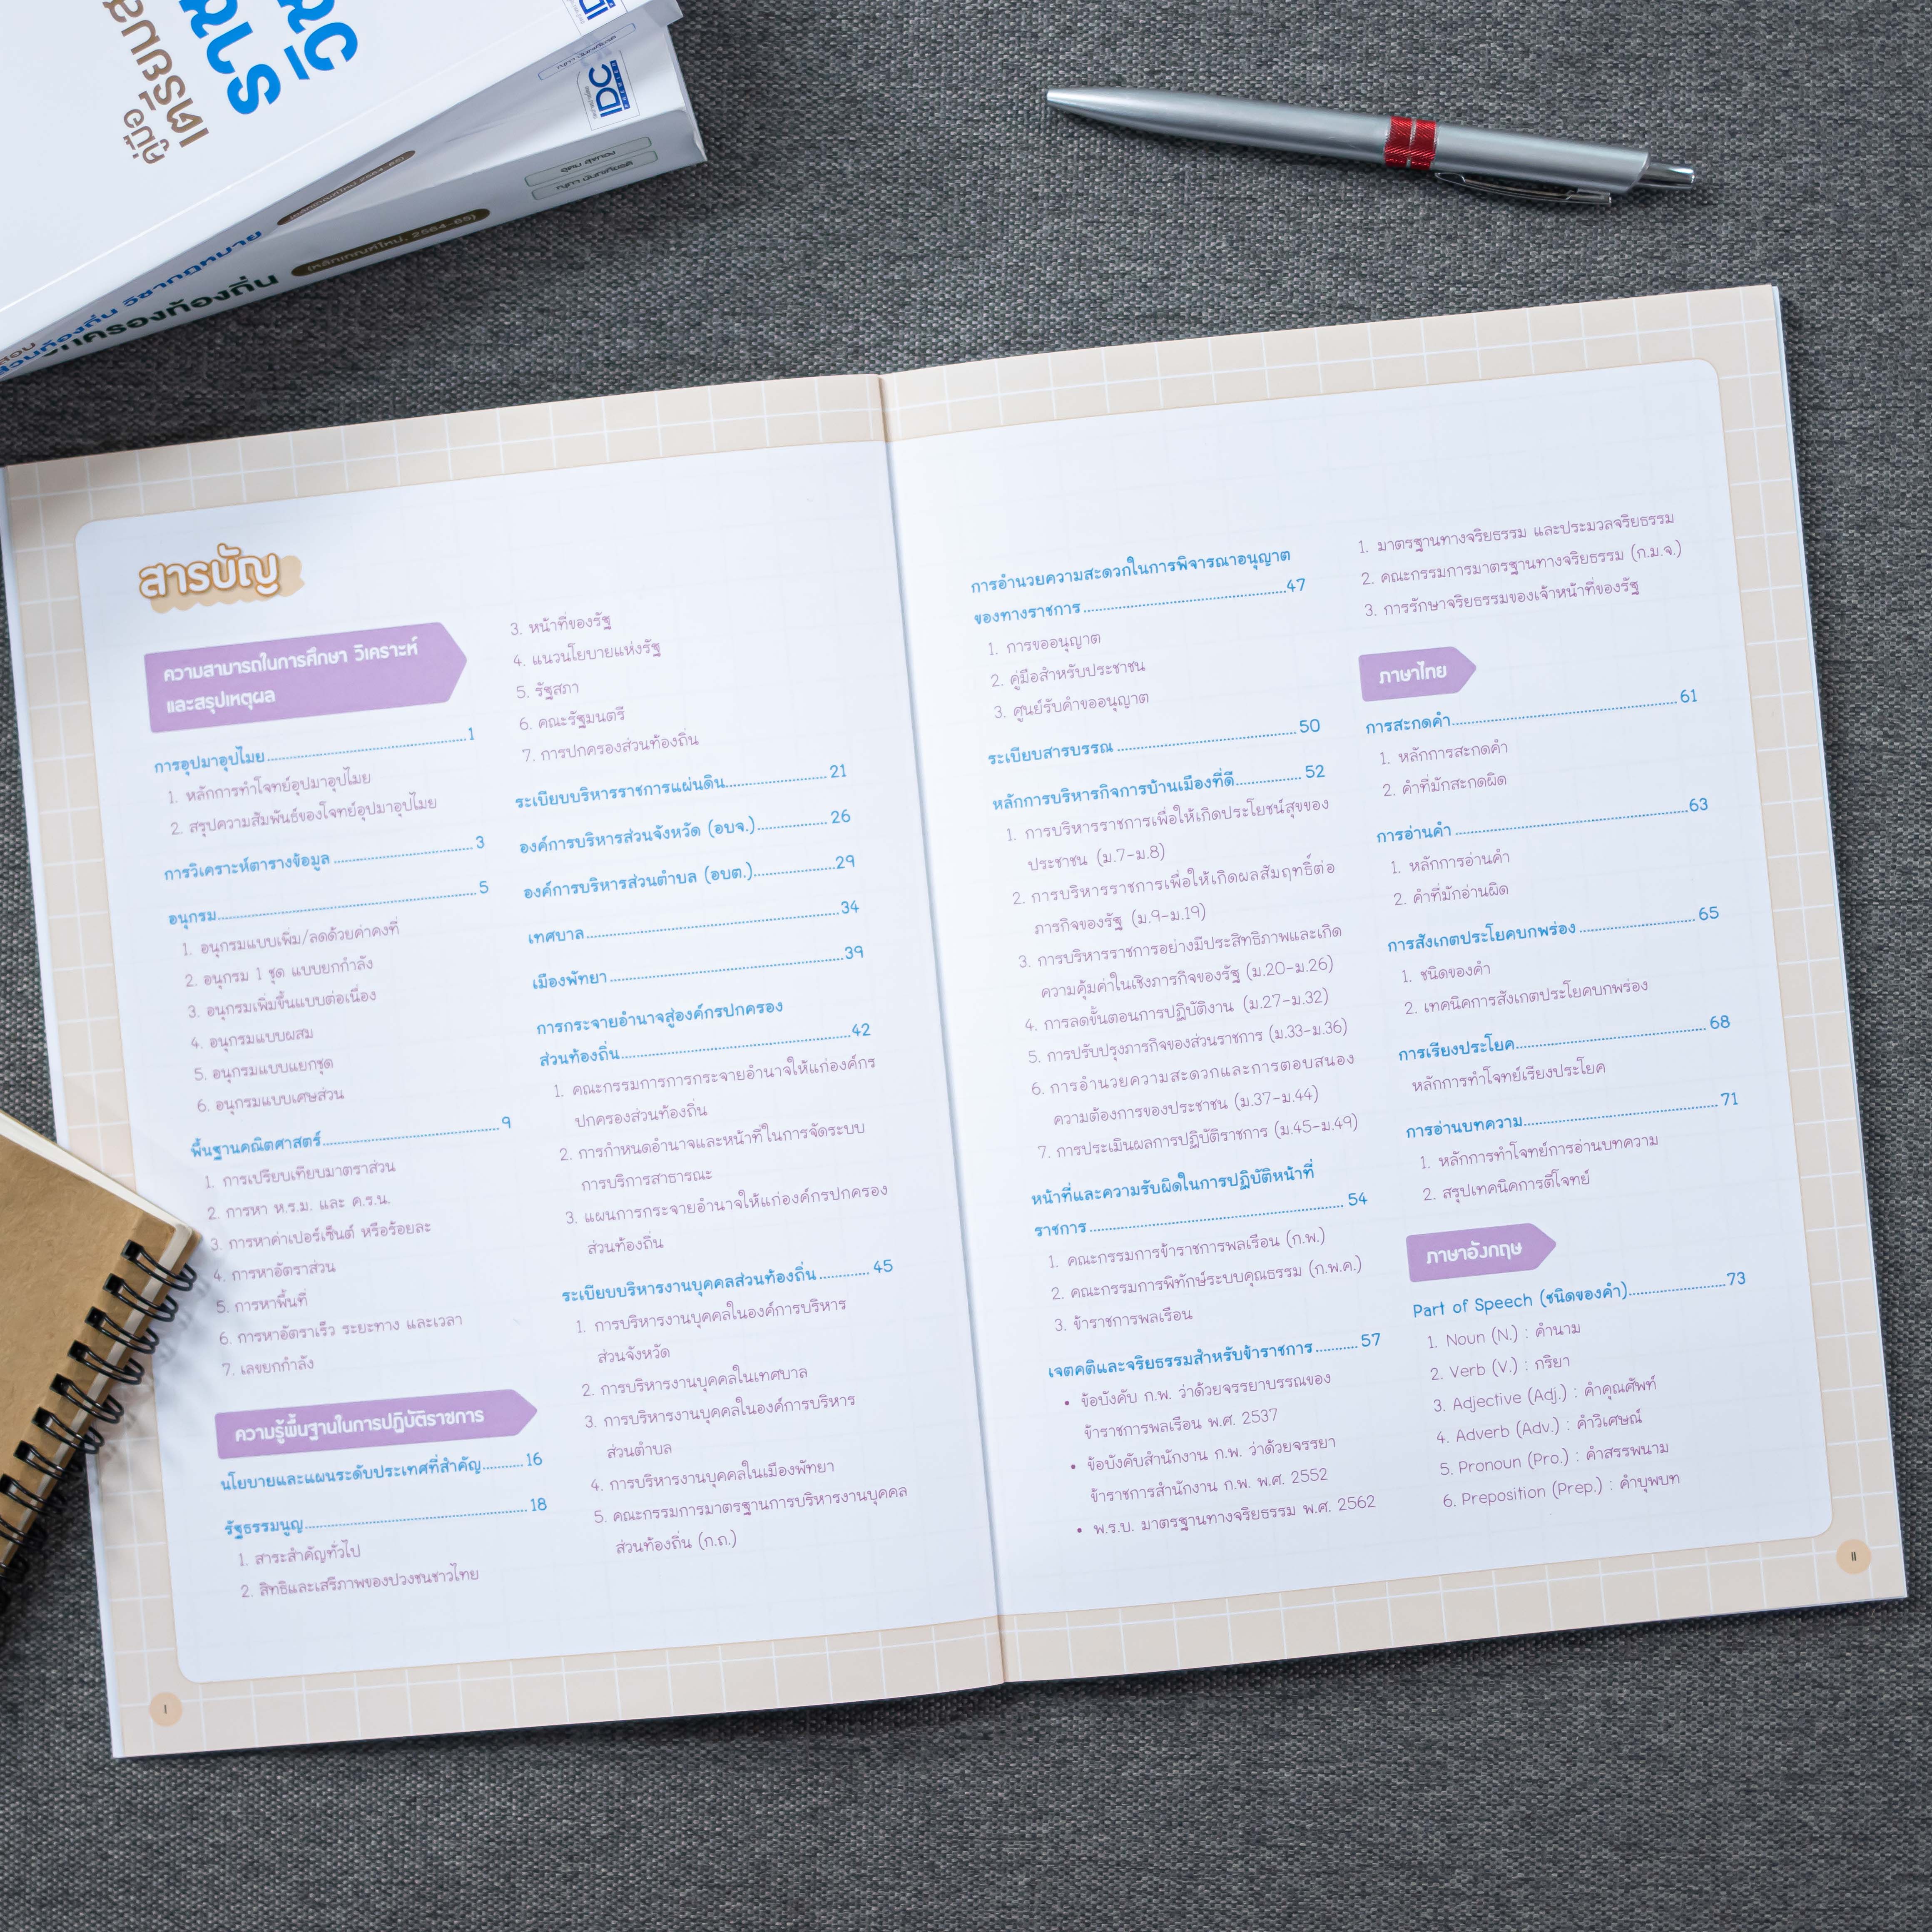 คู่มือ
เตรียมส
IDC
IDC
อุดม สุขทอง
ญฎา นันทเกียรติ
(หลักเกณฑ์ใหม่, 2564-65)
ส่วนท้องถิ่น วิชากฎหมาย
ปกครองท้องถิ่น
สารบัญ
ความสามารถในการศึกษา วิเคราะห์
และสรุปเหตุผล
การอุปมาอุปไมย 1
1. หลักการทำโจทย์อุปมาอุปไมย
2. สรุปความสัมพันธ์ของโจทย์อุปมาอุปไมย
การวิเคราะห์ตารางข้อมูล 3
อนุกรม 5
1. อนุกรมแบบเพิ่ม/ลดด้วยค่าคงที่
2. อนุกรม 1 ชุด แบบยกกำลัง
3. อนุกรมเพิ่มขึ้นแบบต่อเนื่อง
4. อนุกรมแบบผสม
5. อนุกรมแบบแยกชุด
6. อนุกรมแบบเศษส่วน
พื้นฐานคณิตศาสตร์ 9
1. การเปรียบเทียบมาตราส่วน
2. การหา ห.ร.ม. และ ค.ร.น.
3. การหาค่าเปอร์เซ็นต์ หรือร้อยละ
4. การหาอัตราส่วน
5. การหาพื้นที่
6. การหาอัตราเร็ว ระยะทาง และเวลา
7. เลขยกกำลัง
ความรู้พื้นฐานในการปฏิบัติราชการ
นโยบายและแผนระดับประเทศที่สำคัญ 16
รัฐธรรมนูญ 18
1. สาระสำคัญทั่วไป
2. สิทธิและเสรีภาพของปวงชนชาวไทย
3. หน้าที่ของรัฐ
4. แนวนโยบายแห่งรัฐ
5. รัฐสภา
6. คณะรัฐมนตรี
7. การปกครองส่วนท้องถิ่น
ระเบียบบริหารราชการแผ่นดิน 21
องค์การบริหารส่วนจังหวัด (อบจ.) 26
องค์การบริหารส่วนตำบล (อบต.) 29
เทศบาล 34
เมืองพัทยา 39
การกระจายอำนาจสู่องค์กรปกครอง
ส่วนท้องถิ่น 42
1. คณะกรรมการการกระจายอำนาจให้แก่องค์กร
ปกครองส่วนท้องถิ่น
2. การกำหนดอำนาจและหน้าที่ในการจัดระบบ
การบริการสาธารณะ
3. แผนการกระจายอำนาจให้แก่องค์กรปกครอง
ส่วนท้องถิ่น
ระเบียบบริหารงานบุคคลส่วนท้องถิ่น 45
1. การบริหารงานบุคคลในองค์การบริหาร
ส่วนจังหวัด
2. การบริหารงานบุคคลในเทศบาล
3. การบริหารงานบุคคลในองค์การบริหาร
ส่วนตำบล
4. การบริหารงานบุคคลในเมืองพัทยา
5. คณะกรรมการมาตรฐานการบริหารงานบุคคล
ส่วนท้องถิ่น (ก.ถ.)
I
การอำนวยความสะดวกในการพิจารณาอนุญาต
ของทางราชการ 47
1. การขออนุญาต
2. คู่มือสำหรับประชาชน
3. ศูนย์รับคำขออนุญาต
ระเบียบสารบรรณ 50
หลักการบริหารกิจการบ้านเมืองที่ดี 52
1. การบริหารราชการเพื่อให้เกิดประโยชน์สุขของ
ประชาชน (ม.7-ม.8)
2. การบริหารราชการเพื่อให้เกิดผลสัมฤทธิ์ต่อ
ภารกิจของรัฐ (ม.9-ม.19)
3. การบริหารราชการอย่างมีประสิทธิภาพและเกิด
ความคุ้มค่าในเชิงภารกิจของรัฐ (ม.20-ม.26)
4. การลดขั้นตอนการปฏิบัติงาน (ม.27-ม.32)
5. การปรับปรุงภารกิจของส่วนราชการ (ม.33-ม.36)
6. การอำนวยความสะดวกและการตอบสนอง
ความต้องการของประชาชน (ม.37-ม.44)
7. การประเมินผลการปฏิบัติราชการ (ม.45-ม.49)
หน้าที่และความรับผิดในการปฏิบัติหน้าที่
ราชการ 54
1. คณะกรรมการข้าราชการพลเรือน (ก.พ.)
2. คณะกรรมการพิทักษ์ระบบคุณธรรม (ก.พ.ค.)
3. ข้าราชการพลเรือน
เจตคติและจริยธรรมสำหรับข้าราชการ 57
• ข้อบังคับ ก.พ. ว่าด้วยจรรยาบรรณของ
ข้าราชการพลเรือน พ.ศ. 2537
• ข้อบังคับสำนักงาน ก.พ. ว่าด้วยจรรยา
ข้าราชการสำนักงาน ก.พ. พ.ศ. 2552
• พ.ร.บ. มาตรฐานทางจริยธรรม พ.ศ. 2562
1. มาตรฐานทางจริยธรรม และประมวลจริยธรรม
2. คณะกรรมการมาตรฐานทางจริยธรรม (ก.ม.จ.)
3. การรักษาจริยธรรมของเจ้าหน้าที่ของรัฐ
ภาษาไทย
การสะกดคำ 61
1. หลักการสะกดคำ
2. คำที่มักสะกดผิด
การอ่านคำ 63
1. หลักการอ่านคำ
2. คำที่มักอ่านผิด
การสังเกตประโยคบกพร่อง 65
1. ชนิดของคำ
2. เทคนิคการสังเกตประโยคบกพร่อง
การเรียงประโยค 68
หลักการทำโจทย์เรียงประโยค
การอ่านบทความ 71
1. หลักการทำโจทย์การอ่านบทความ
2. สรุปเทคนิคการตีโจทย์
ภาษาอังกฤษ
Part of Speech (ชนิดของคำ) 73
1. Noun (N.) : คำนาม
2. Verb (V.) : กริยา
3. Adjective (Adj.) : คำคุณศัพท์
4. Adverb (Adv.) : คำวิเศษณ์
5. Pronoun (Pro.) : คำสรรพนาม
6. Preposition (Prep.) : คำบุพบท
II